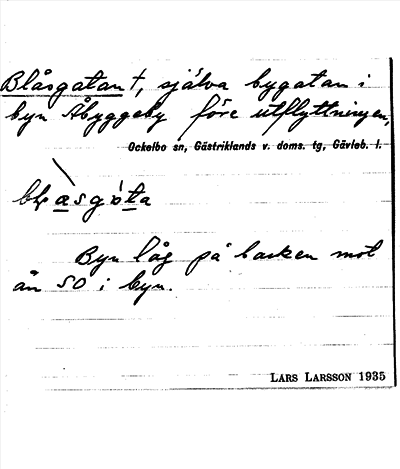 Blåsgatan †, själva bygatan i
byn Åbyggeby före utflyttningen,
Ockelbo sn, Gästriklands v. doms. tg, Gävleb. l.
Byn låg på backen mot
ån SO i byn.
LARS LARSSON 1935